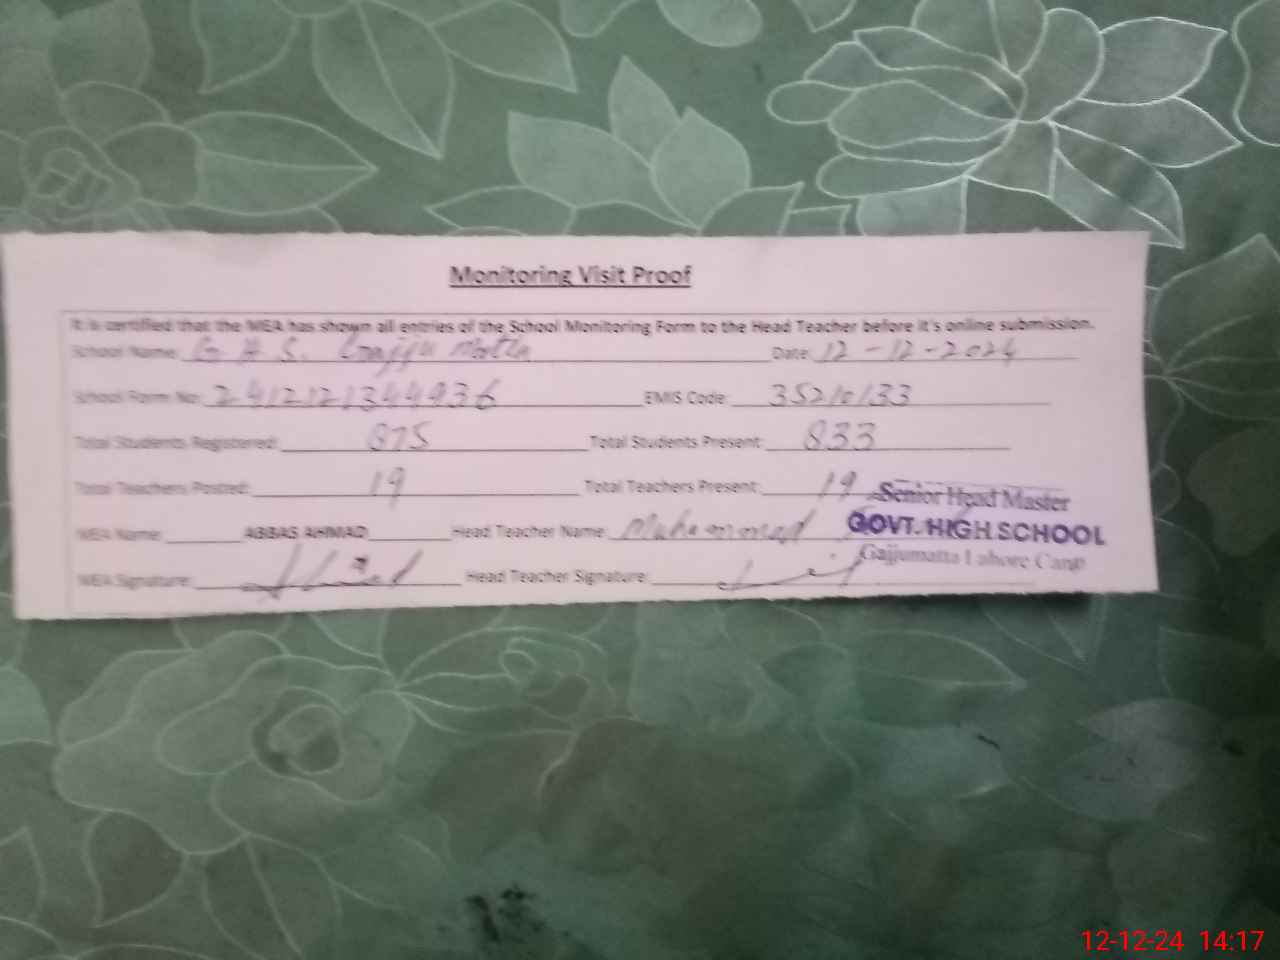 Monitoring Visit Proof
It is certified that the MEA has shown all entries of the School Monitoring Form to the Head Teacher before it's online submission.
School Name: G H S. Gajju Matta Date: 12-12-2024
School Form No: 2412121344936 EMIS Code: 35210133
Total Students Registered: 875 Total Students Present: 833
Total Teachers Posted: 19 Total Teachers Present: 19
Senior Head Master
MEA Name: ABBAS AHMAD Head Teacher Name: Muhammad
GOVT. HIGH SCHOOL
Gajjumatta Lahore Cantt
MEA Signature: Head Teacher Signature:
12-12-24 14:17